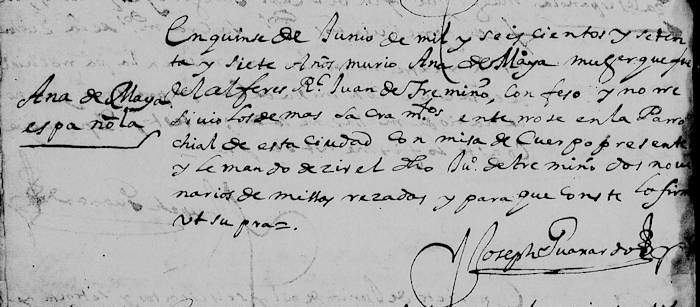 En quinse de Junio de mil y seis cientos y seten
ta y siete Años murio Ana de Maya muger que fue
del alferes Rl Juan de Tremiño, confeso y no rre
sivio los demas sacramtos enterose en la Parro
chial de esta Ciudad con misa de Cuerpo presente
y le mando dezir el dho Ju.o de tremiño dos nove
narios de missas rezadas y para que conste lo firme
ut supra
Ana de Maya
española
Joseph Guaxardo